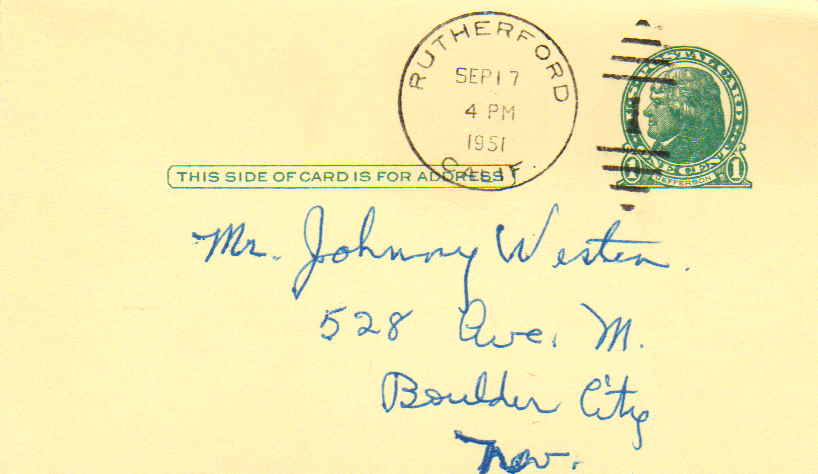 RUTHERFORD
SEP 17
4 PM
1951
CALIF.
U.S. POSTAL CARD
ONE CENT
1 1
JEFFERSON
THIS SIDE OF CARD IS FOR ADDRESS
Mr. Johnny Weston.
528 Ave. M.
Boulder City
Nev.